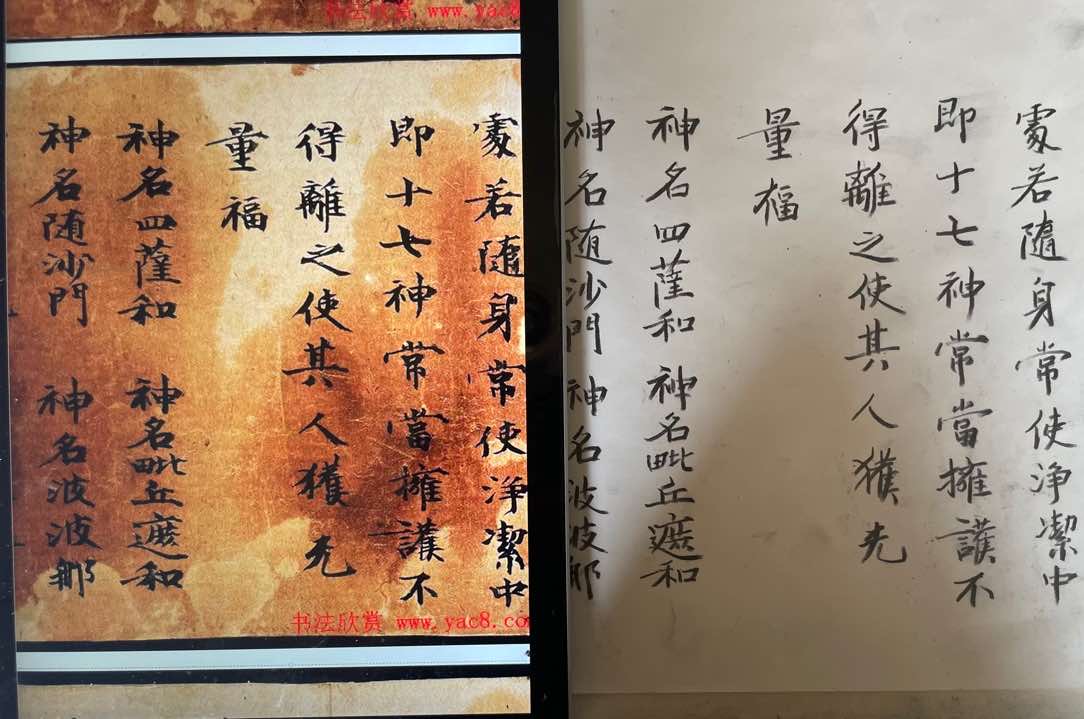 书法欣赏 www.yac8
處若隨身常使淨潔中
即十七神常當擁護不
得離之使其人獲无
量福
神名四薩和 神名毗丘遮和
神名随沙門 神名波波那
书法欣赏 www.yac8.co
處若隨身常使淨潔中
即十七神常當擁護不
得離之使其人獲无
量福
神名四薩和 神名毗丘遮和
神名随沙門 神名波波那